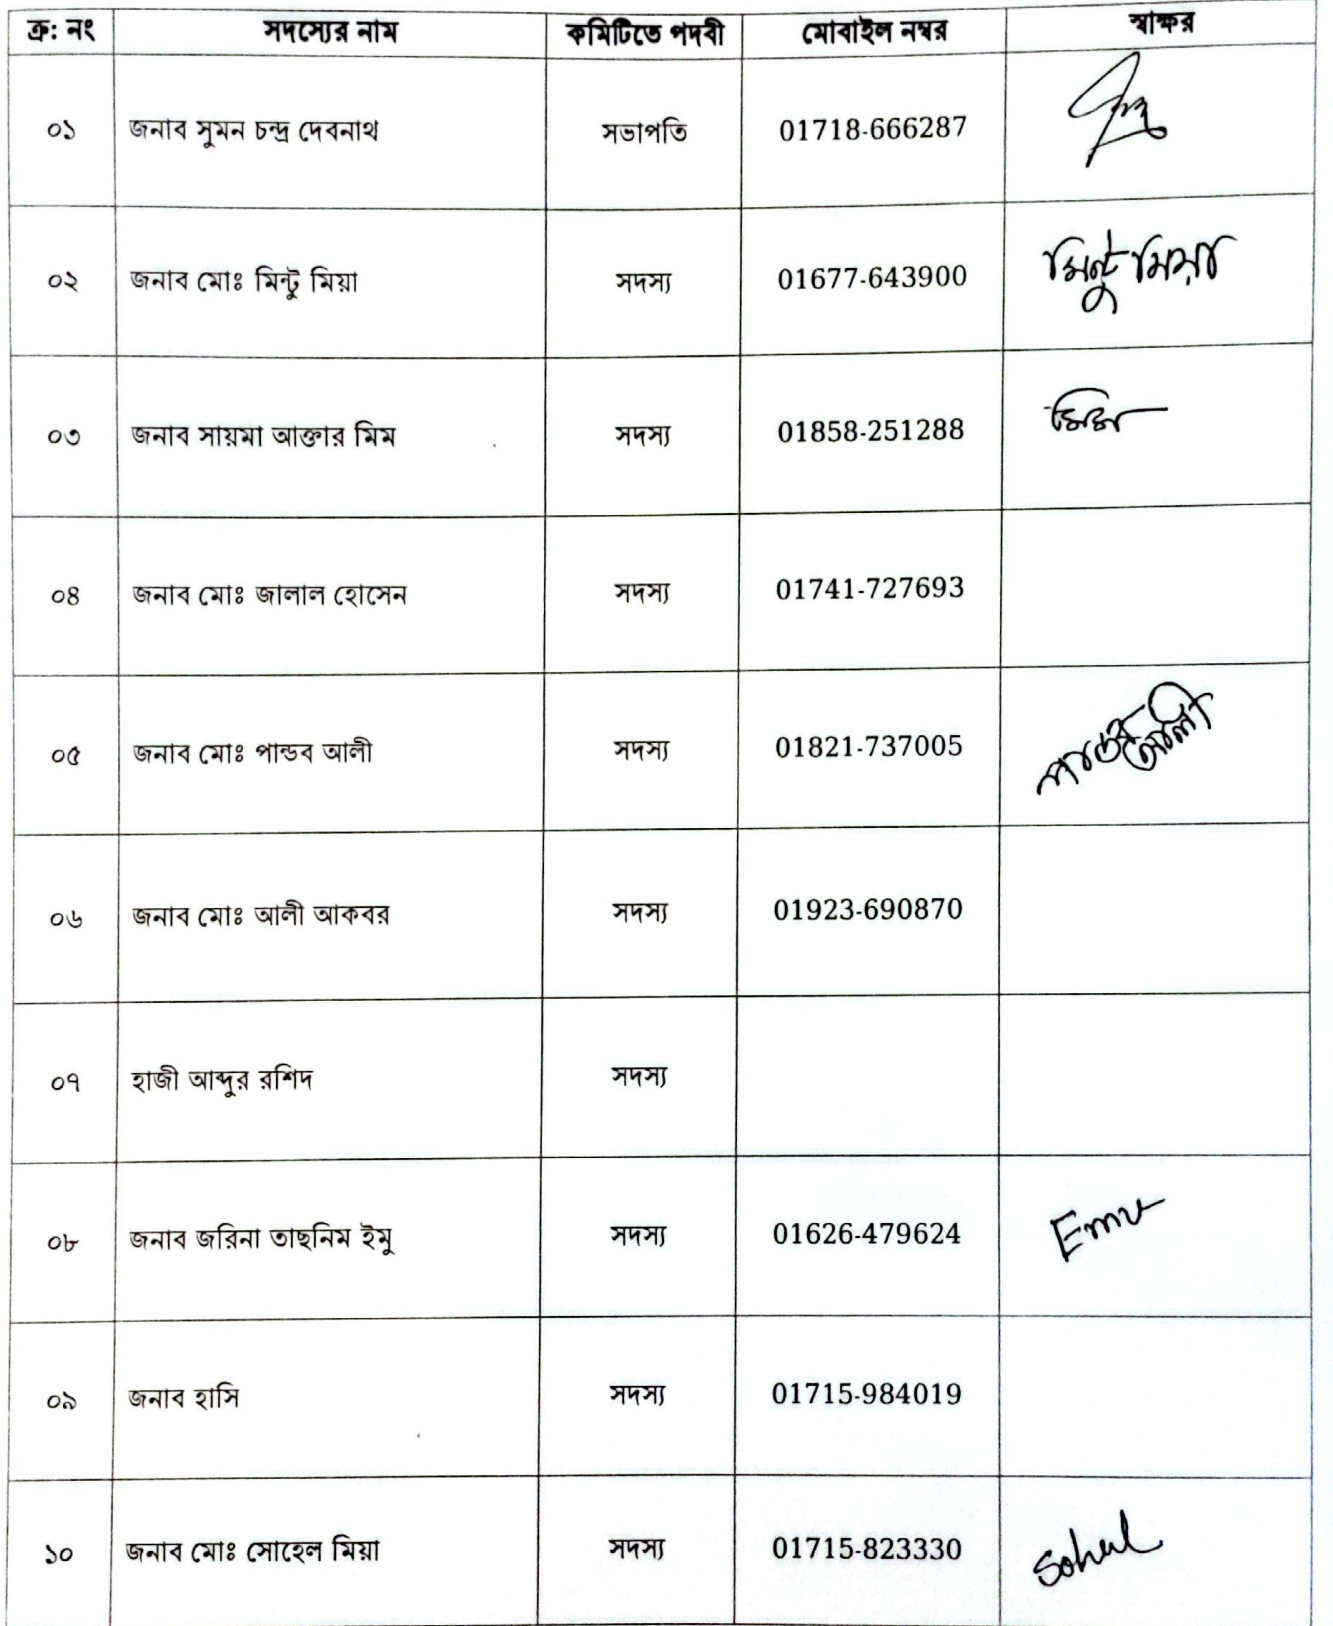 ক্র: নং সদস্যের নাম কমিটিতে পদবী মোবাইল নম্বর স্বাক্ষর
০১ জনাব সুমন চন্দ্র দেবনাথ সভাপতি 01718-666287
০২ জনাব মোঃ মিন্টু মিয়া সদস্য 01677-643900 মিন্টু মিয়া
০৩ জনাব সায়মা আক্তার মিম সদস্য 01858-251288 মিম
০৪ জনাব মোঃ জালাল হোসেন সদস্য 01741-727693
০৫ জনাব মোঃ পান্ডব আলী সদস্য 01821-737005 পান্ডব আলী
০৬ জনাব মোঃ আলী আকবর সদস্য 01923-690870
০৭ হাজী আব্দুর রশিদ সদস্য
০৮ জনাব জরিনা তাছনিম ইমু সদস্য 01626-479624 Emu
০৯ জনাব হাসি সদস্য 01715-984019
১০ জনাব মোঃ সোহেল মিয়া সদস্য 01715-823330 Sohel